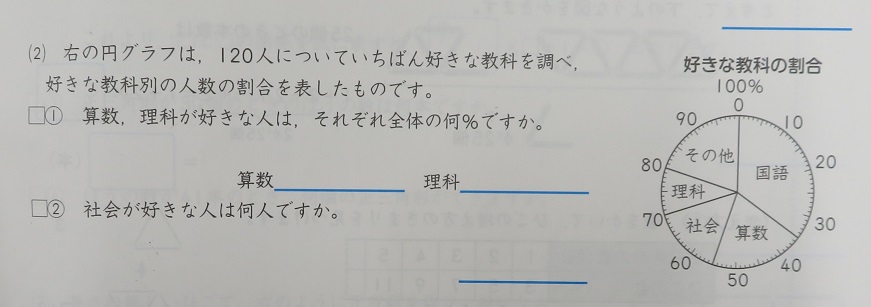 ⑵ 右の円グラフは，120人についていちばん好きな教科を調べ，
好きな教科別の人数の割合を表したものです。
□① 算数，理科が好きな人は，それぞれ全体の何％ですか。
算数 理科
□② 社会が好きな人は何人ですか。
好きな教科の割合
100%
0
90 10
その他 国語
80 20
理科
70 社会 算数 30
60 40
50